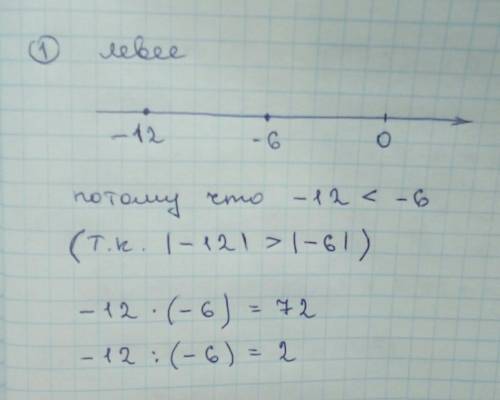 ① левее
-12 -6 0
потому что -12 < -6
(т.к. |-12| > |-6|)
-12 · (-6) = 72
-12 : (-6) = 2